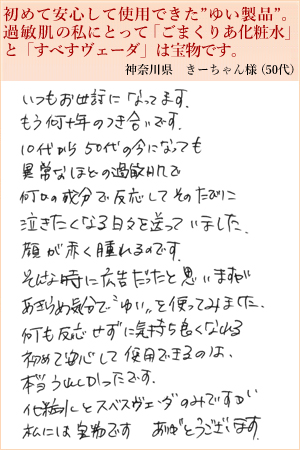 初めて安心して使用できた”ゆい製品”。
過敏肌の私にとって「ごまくりあ化粧水」
と「すべすヴェーダ」は宝物です。
神奈川県　きーちゃん様 (50代)
いつもお世話になってます.
もう何十年のつき合いです.
10代から50代の今になっても
異常なほどの過敏肌で
何かの成分で反応してそのたびに
泣きたくなる日々を送っていました.
顔が赤く腫れるのです.
そんな時に広告だったと思いますが
あきらめ気分で“ゆい„を使ってみました.
何も反応せずに気持ち良くなれる
初めて安心して使用できるのは、
本当うれしかったです.
化粧水とスベスヴェーダのみですが
私には宝物です　ありがとうございます.